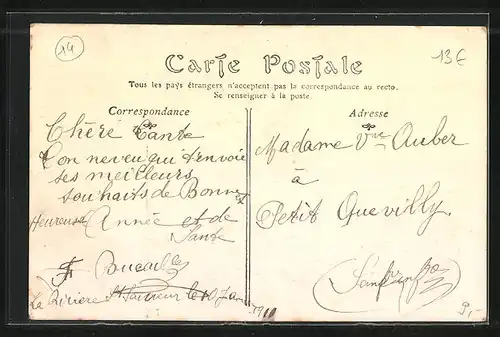 14
13€
Carte Postale
Tous les pays étrangers n'acceptent pas la correspondance au recto.
Se renseigner à la poste.
Correspondance
Chère Tante
Ton neveu qui t'envoie
ses meilleurs
souhaits de Bonne et
Heureuse Année et de
Sante
La Rivière St Sauveur le
Adresse
Madame Vve Auber
à
Petit Quevilly
9,-